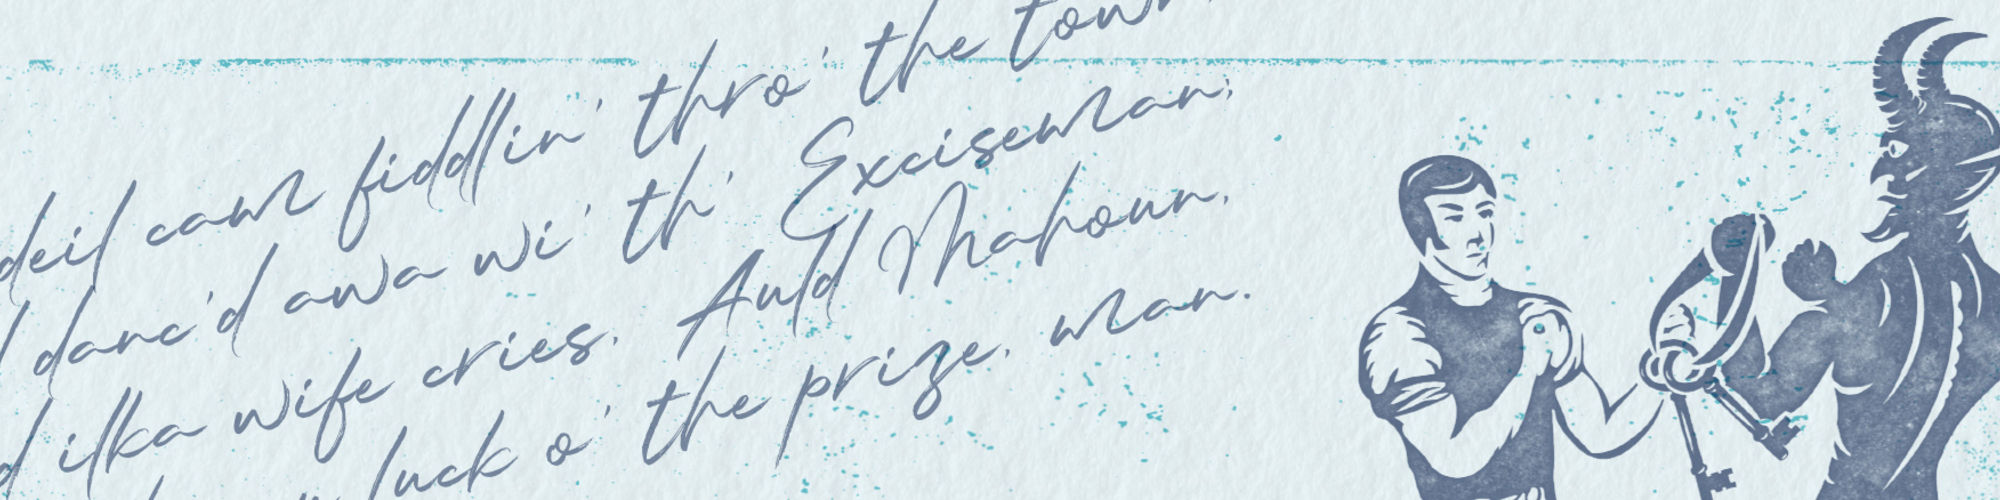 deil cam fiddlin' thro' the town,
danc'd awa wi' th' Exciseman;
ilka wife cries, Auld Mahoun,
luck o' the prize, man.